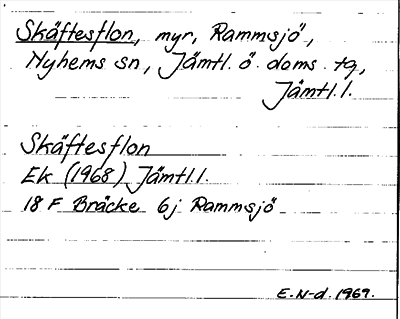 Skäftesflon, myr, Rammsjö,
Nyhems sn, Jämtl. ö. doms. tg,
Jämtl.l.
Skäftesflon
Ek (1968) Jämtl.l.
18 F Bräcke 6j Rammsjö
E.N-d. 1969.